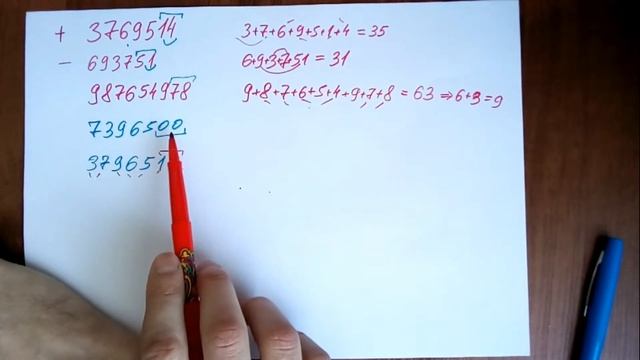 + 3769514 3+7+6+9+5+1+4 = 35
- 693751 6+9+3+7+51 = 31
987654978 9+8+7+6+5+4+9+7+8 = 63 ⇒ 6+3=9
7396500
379651